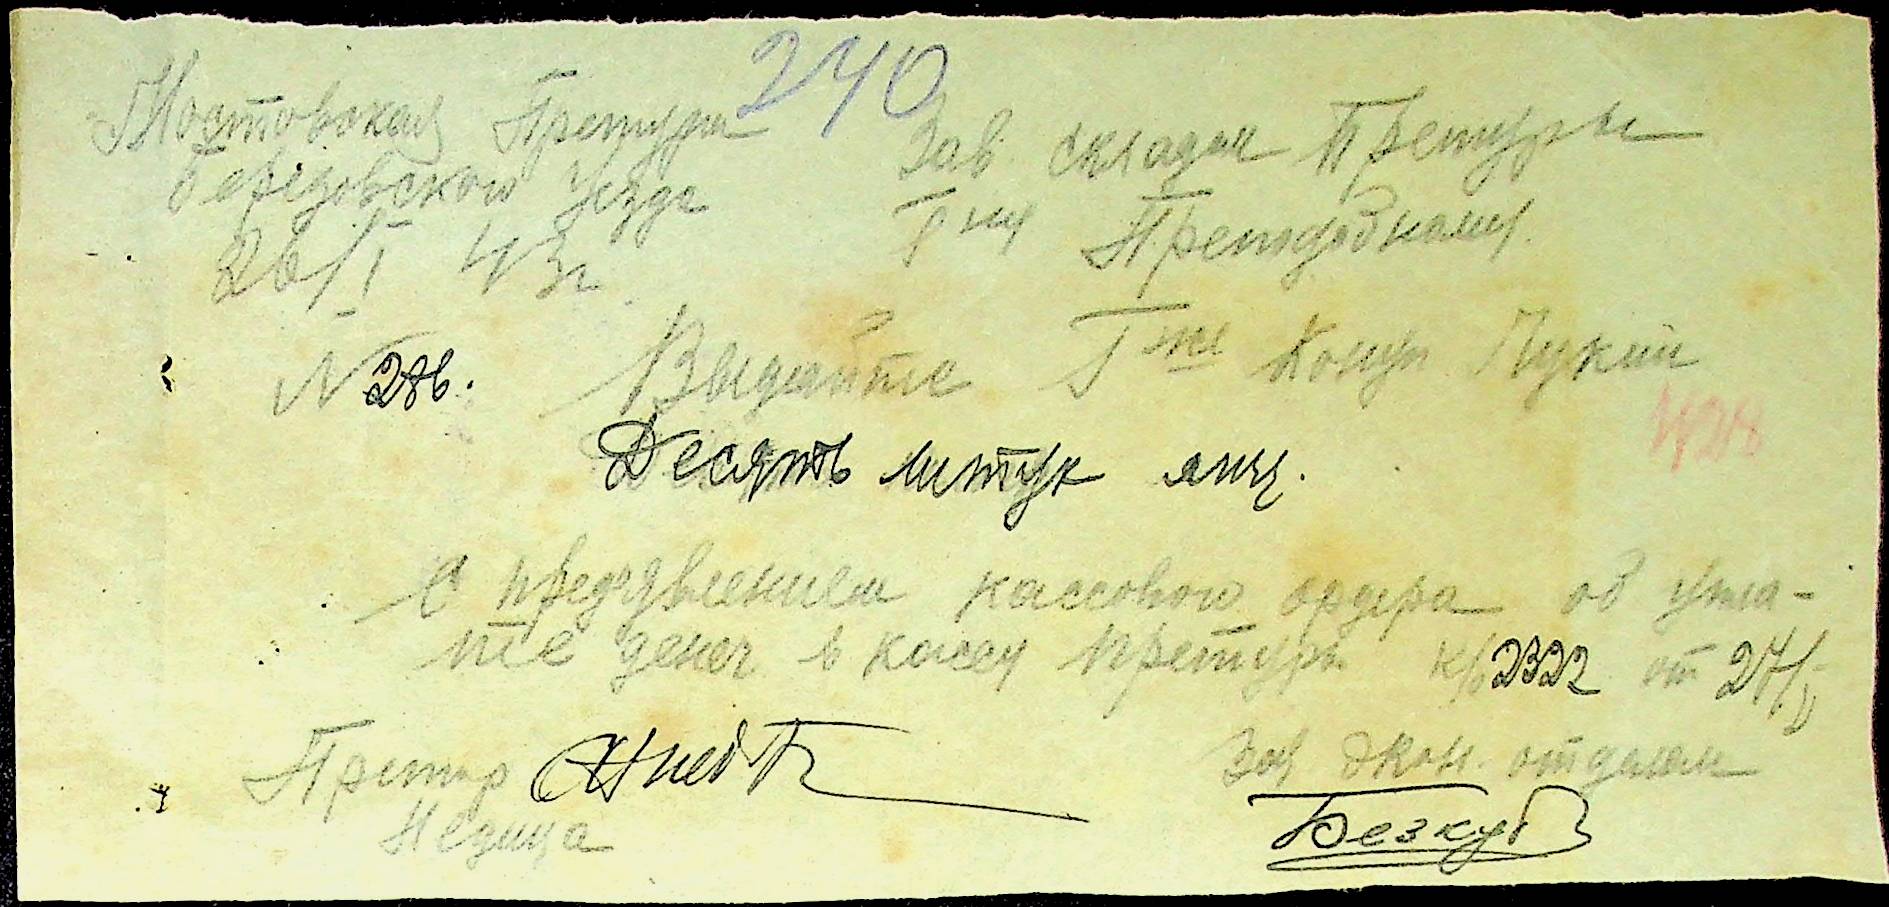 240
Мостовская Претура
Березовского Уезда
26/I 43г.
Зав. складом Претуры
Г-ну
N 286.
Выдайте Г-же
428
Десять штук яиц.
С предъявлением кассового ордера об упла-
те денег в кассу претуры к/о 2322 от 27/I
Претор
Зав. экон. отделом
Безкуб